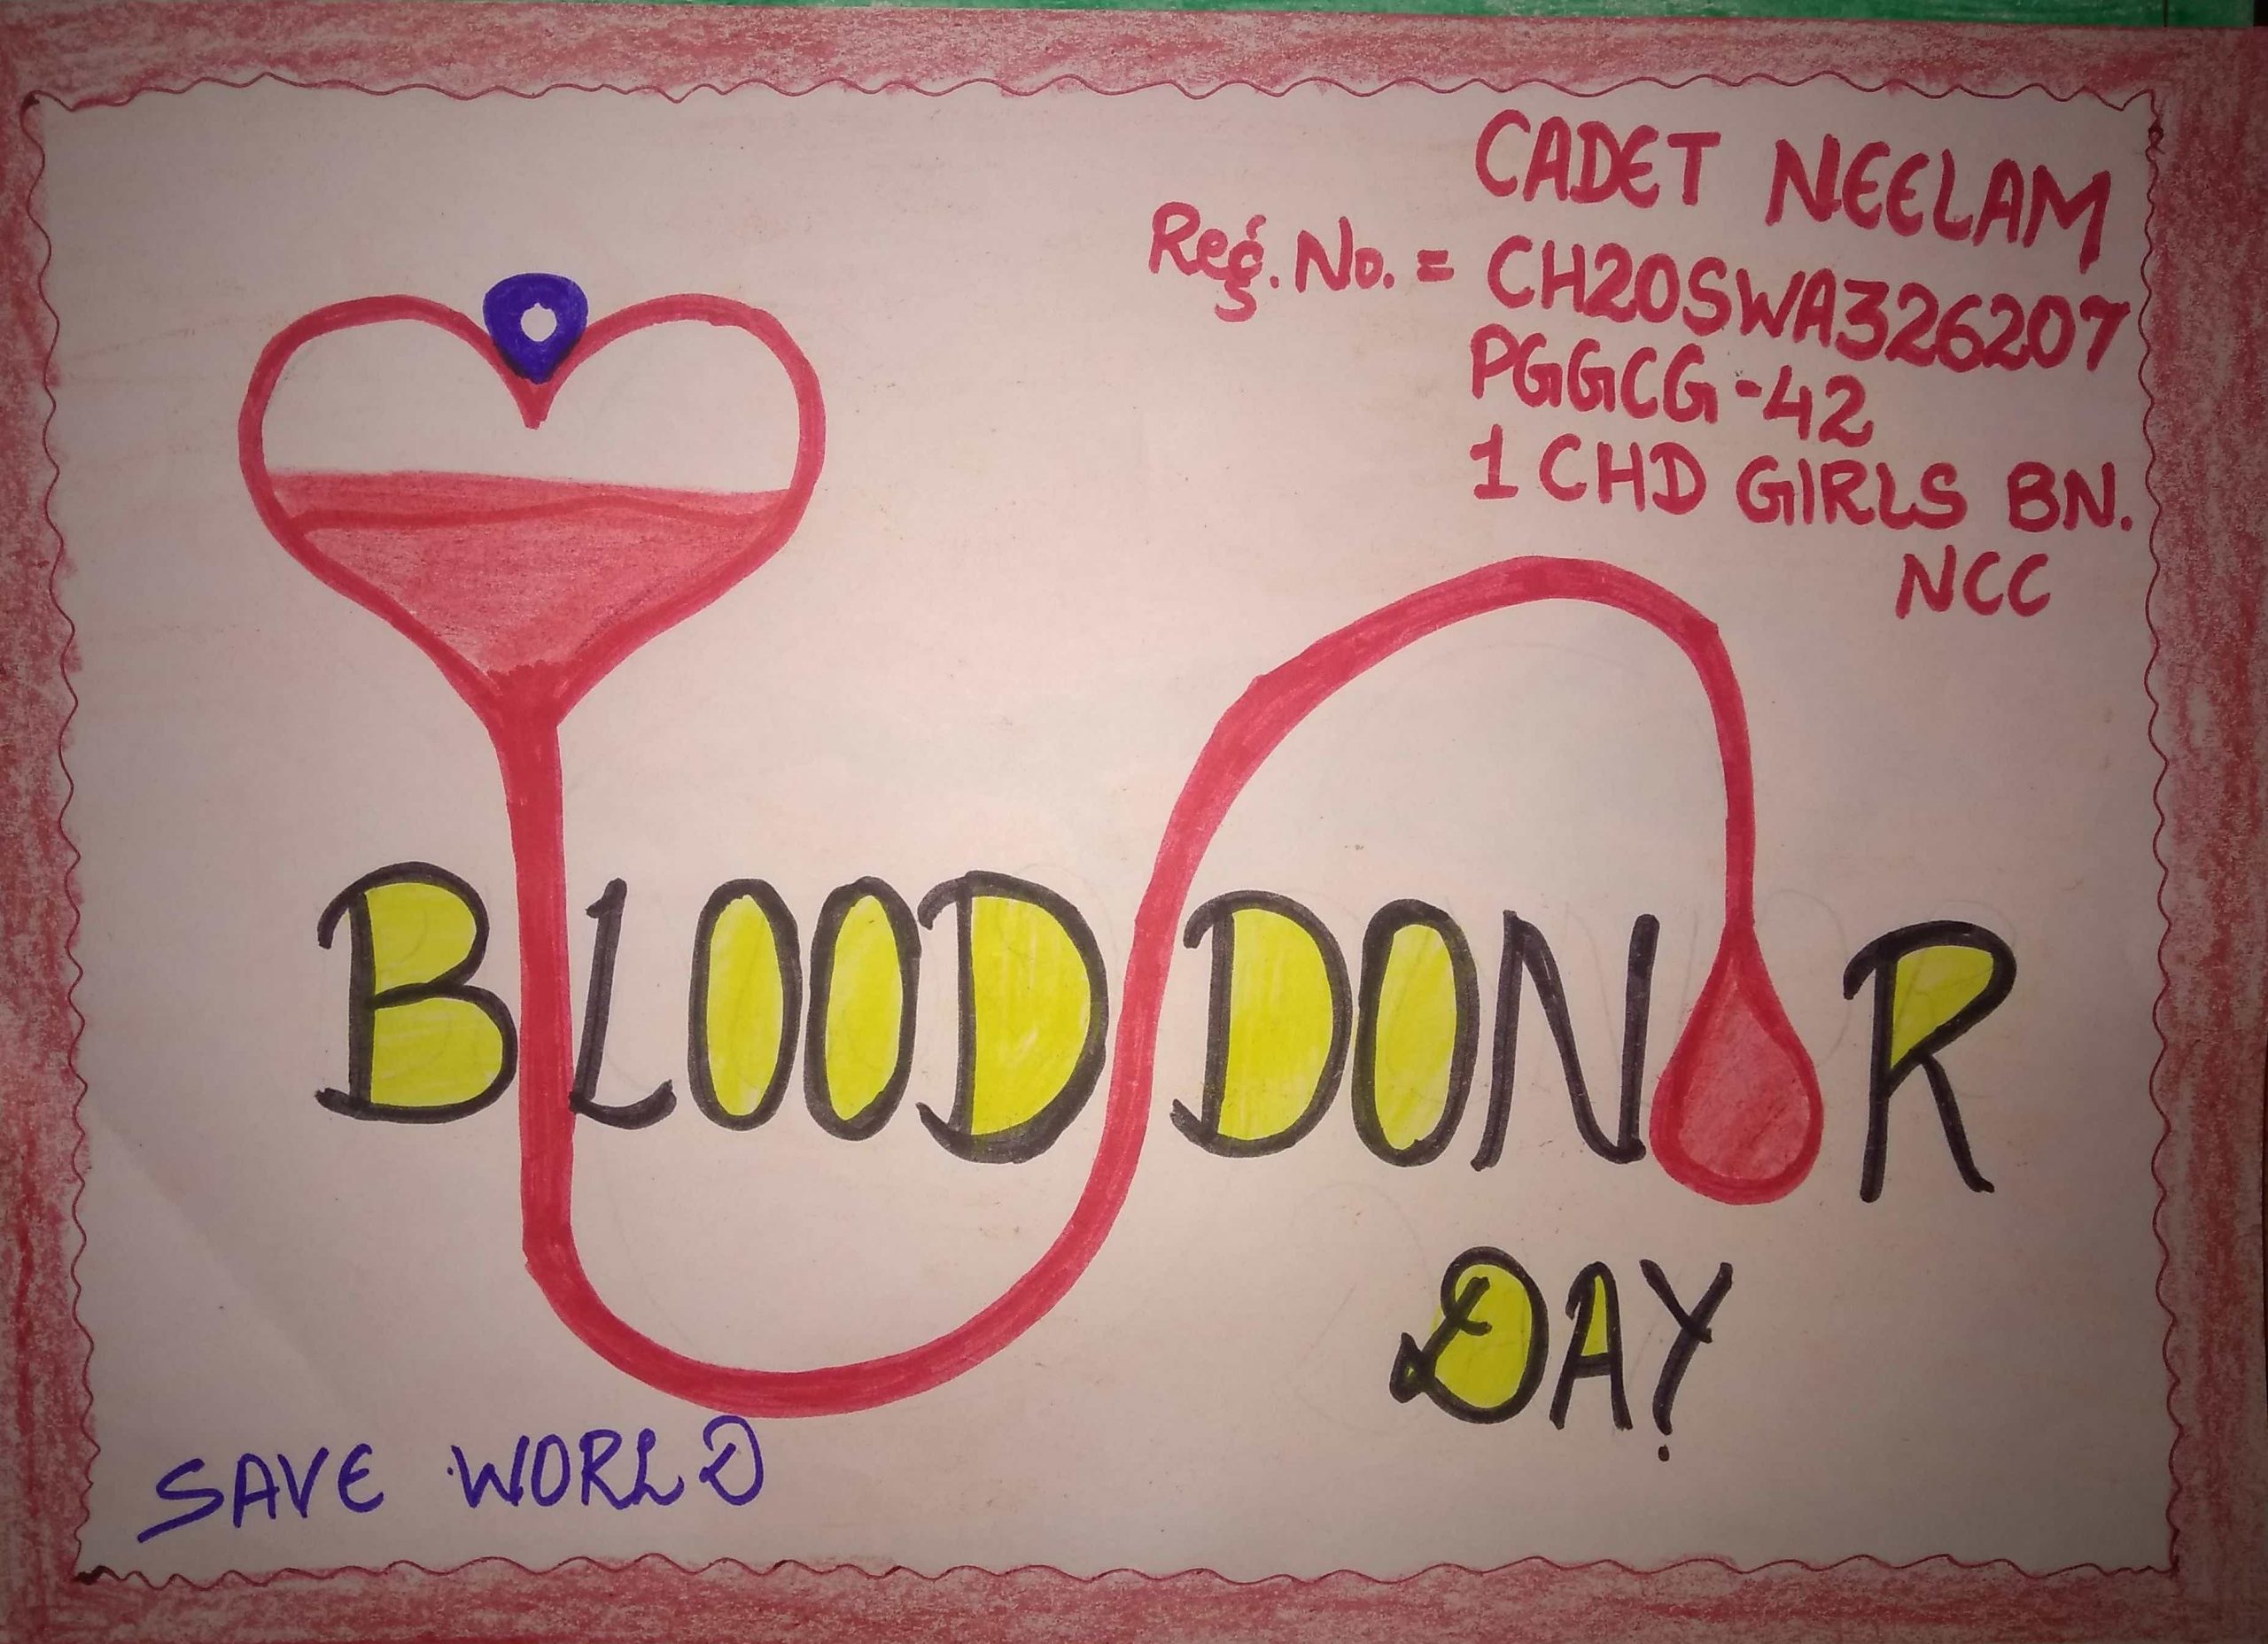 CADET NEELAM
Reg. No. = CH20SWA326207
PGGCG-42
1 CHD GIRLS BN.
NCC
BLOOD DONOR
DAY
SAVE WORLD